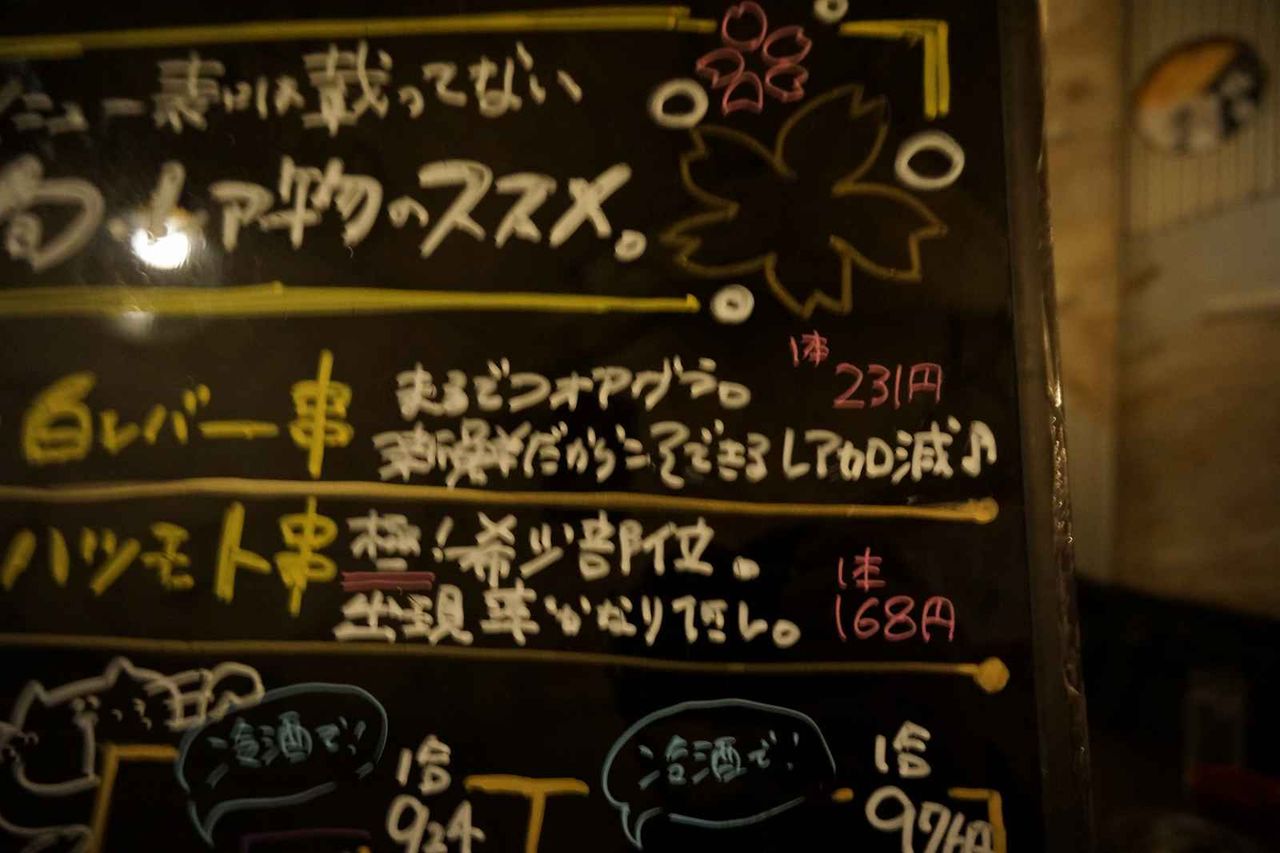 ニュー表には載ってない
旬・レア物のススメ。
白レバー串
まるでフォアグラ。
1本 231円
新鮮だからこそできるレア加減♪
ハツモト串
極!希少部位。
出現率かなり低し。
1本
168円
冷酒で!
1合
924
冷酒で!
1合
976円